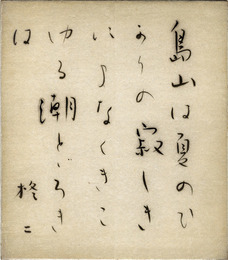 島山は夏のひ
かりの寂しき
にうなくきこ
ゆる潮とゞろき
は
柊二